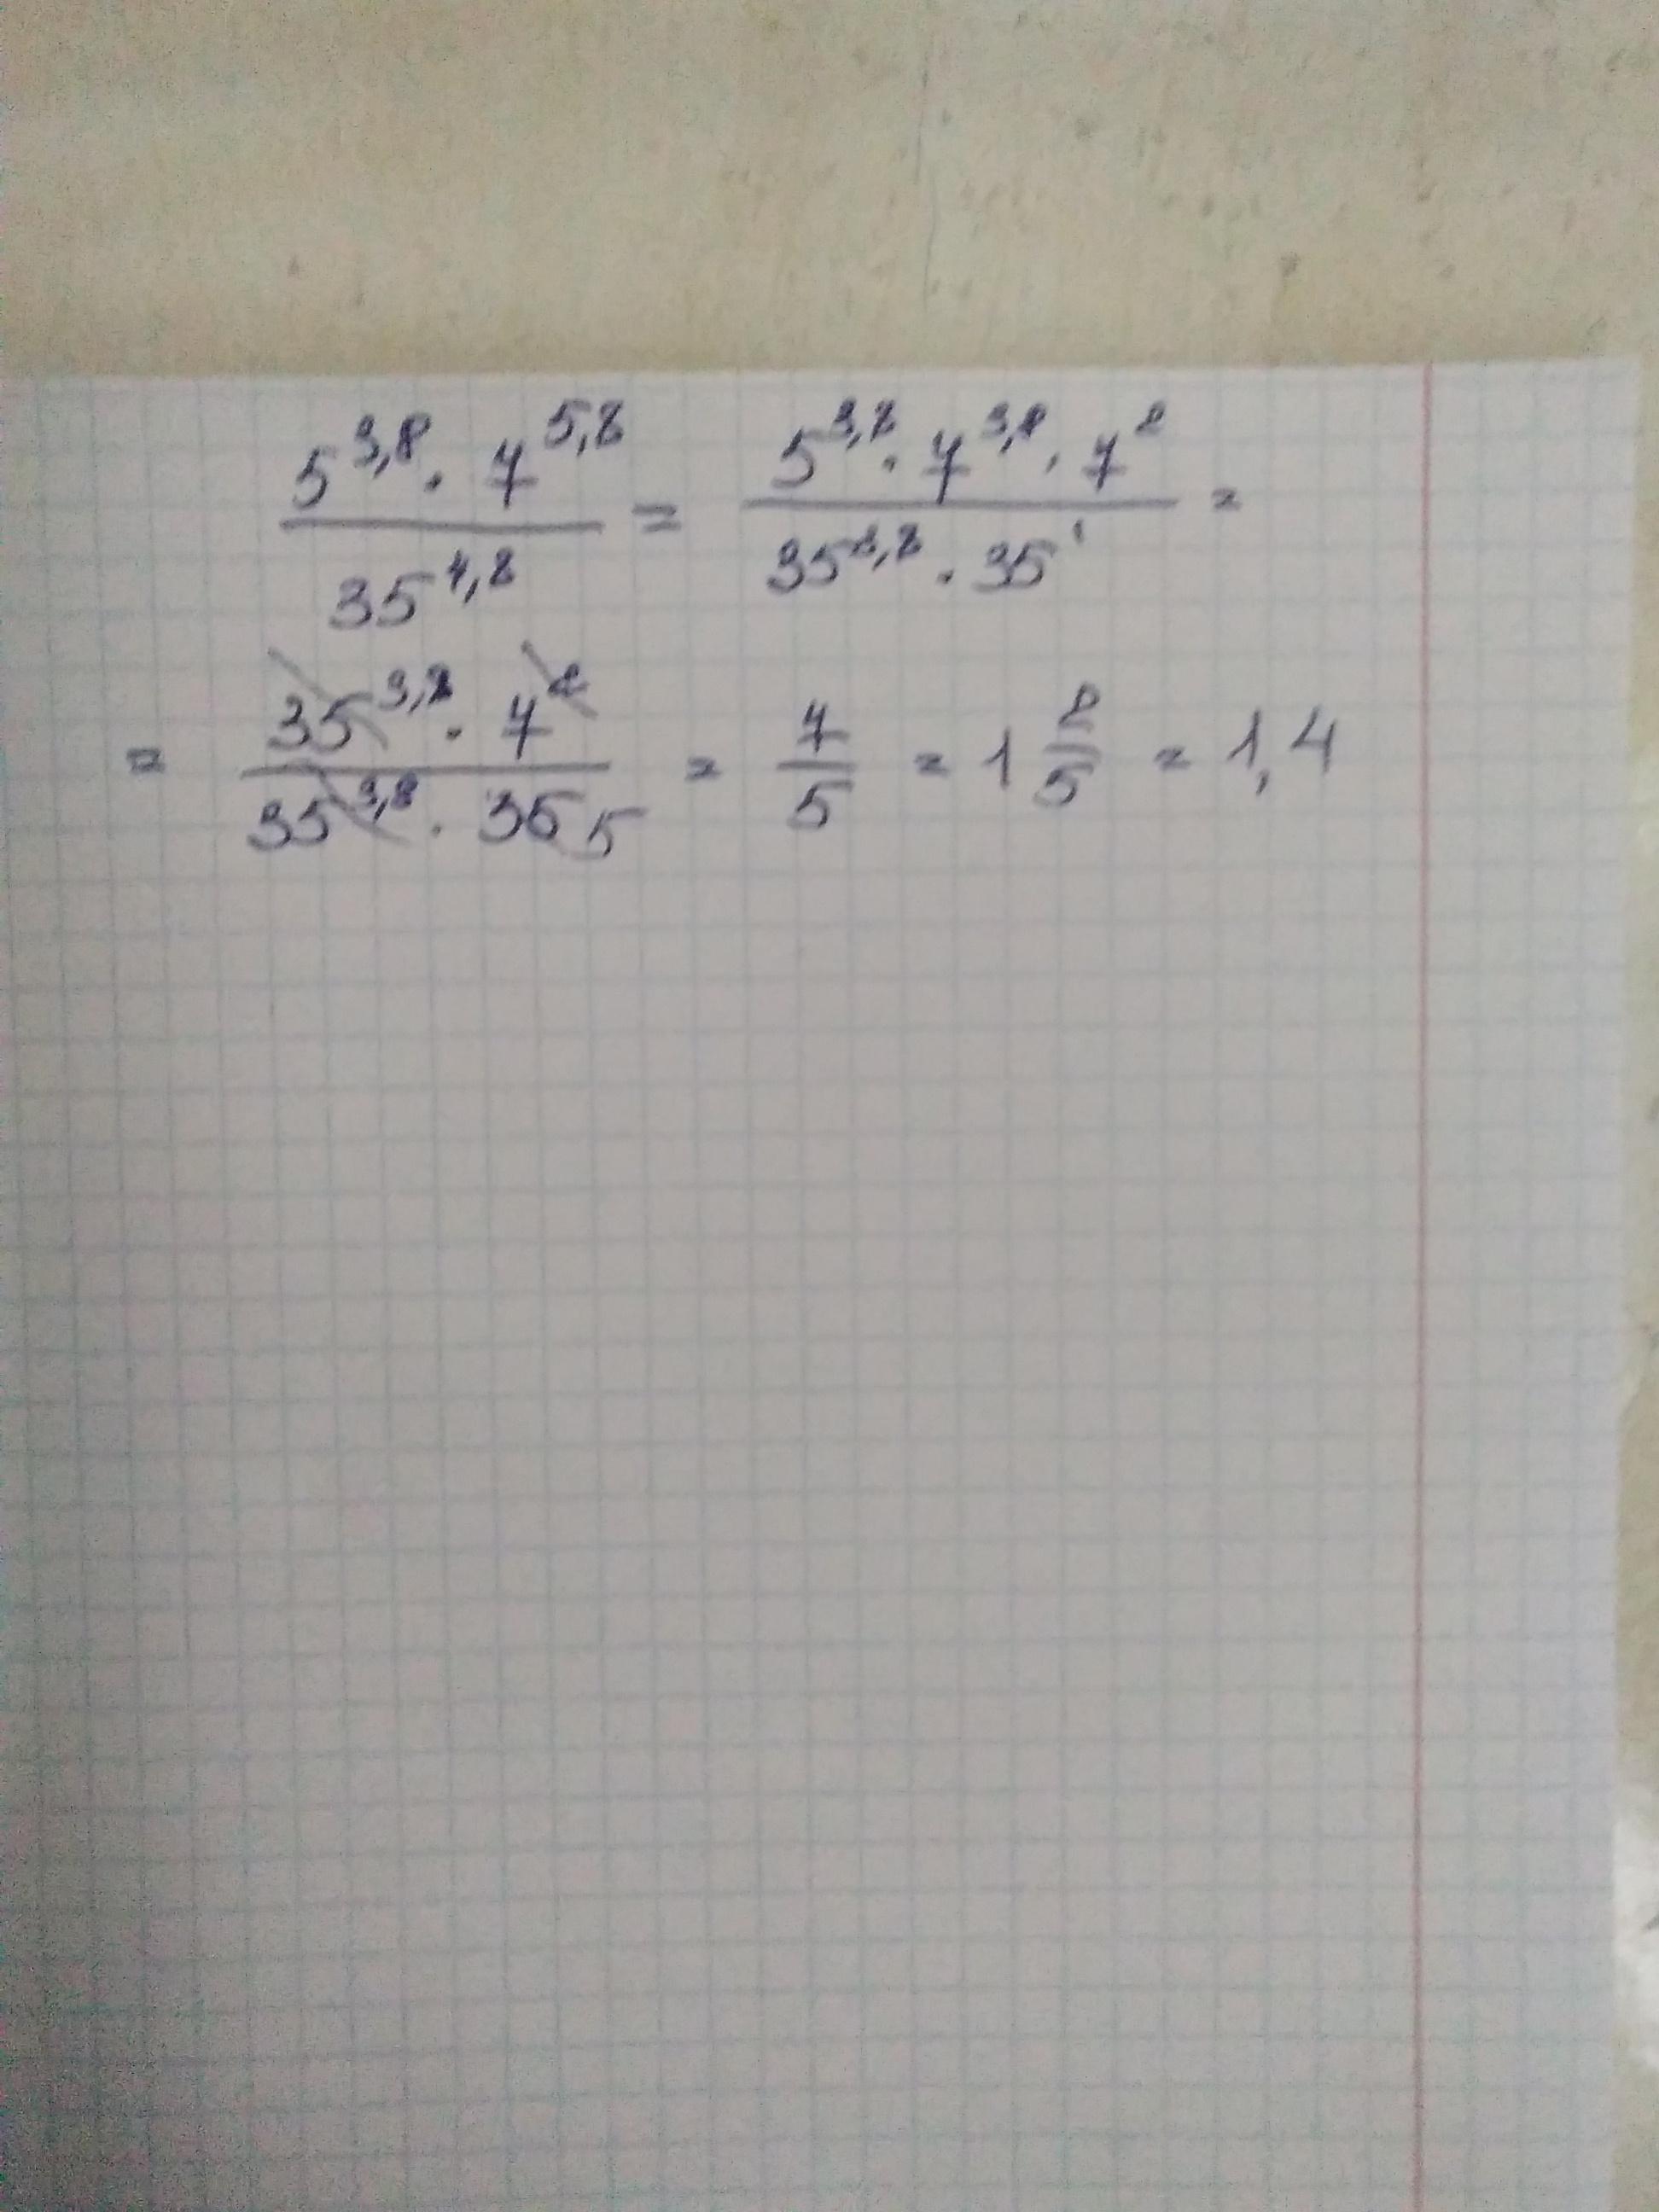 5^3,8 · 7^5,8 / 35^4,8 = 5^3,8 · 7^3,8 · 7^2 / 35^3,8 · 35^1 =
= 35^3,8 · 7^2 / 35^3,8 · 35 5 = 7/5 = 1 2/5 = 1,4